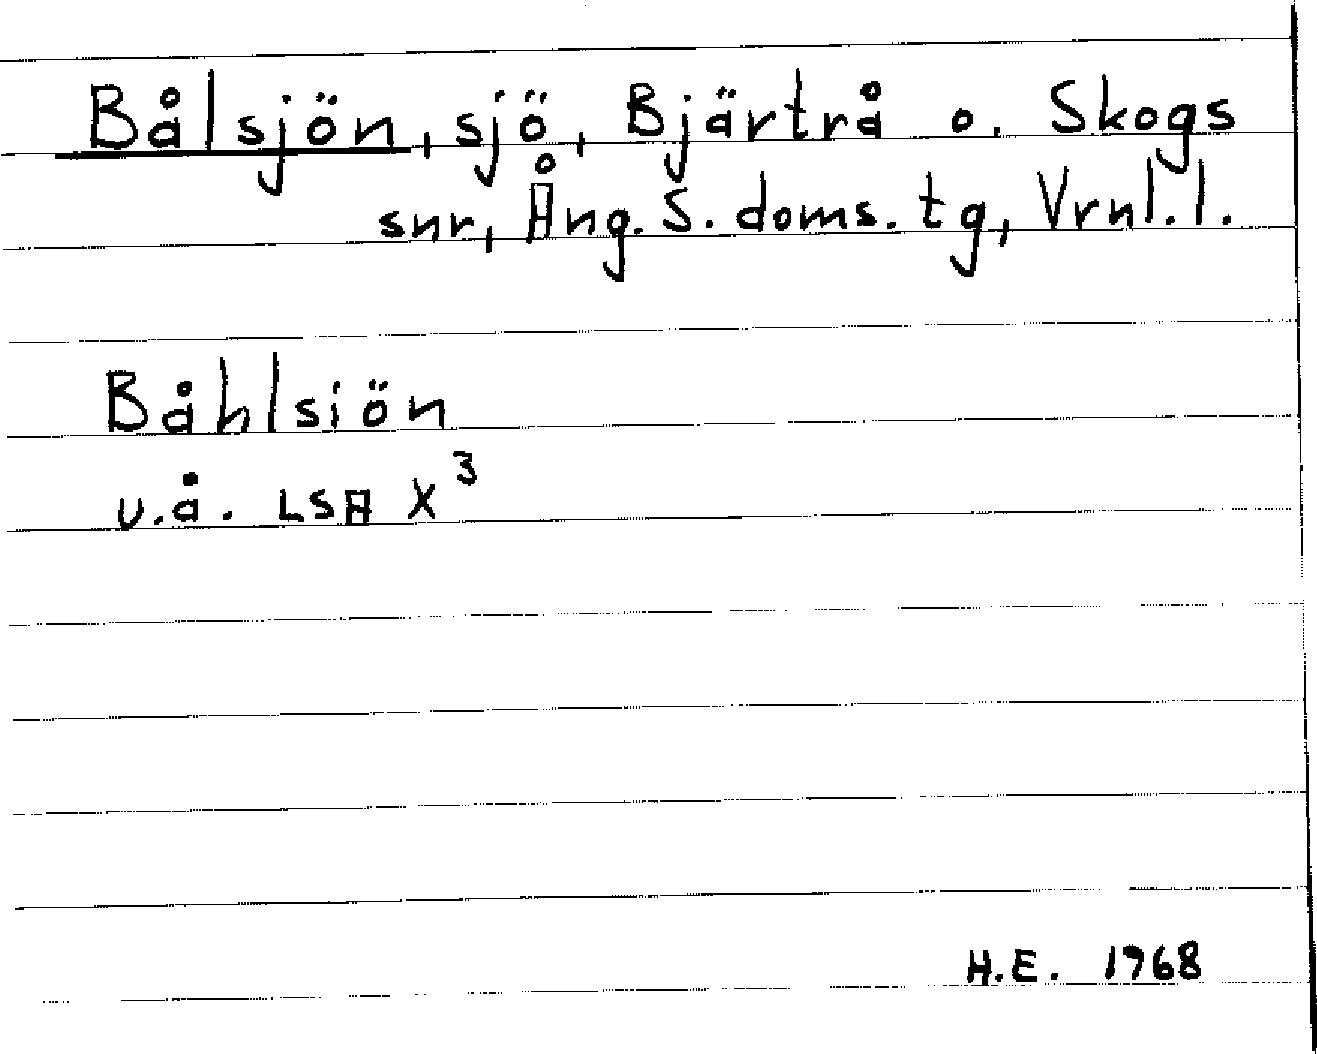 Bålsjön, sjö, Bjärtrå o. Skogs
snr, Ång. S. doms. tg, Vrnl. l.
Båhlsiön
u.å. LSA X³
H.E. 1968